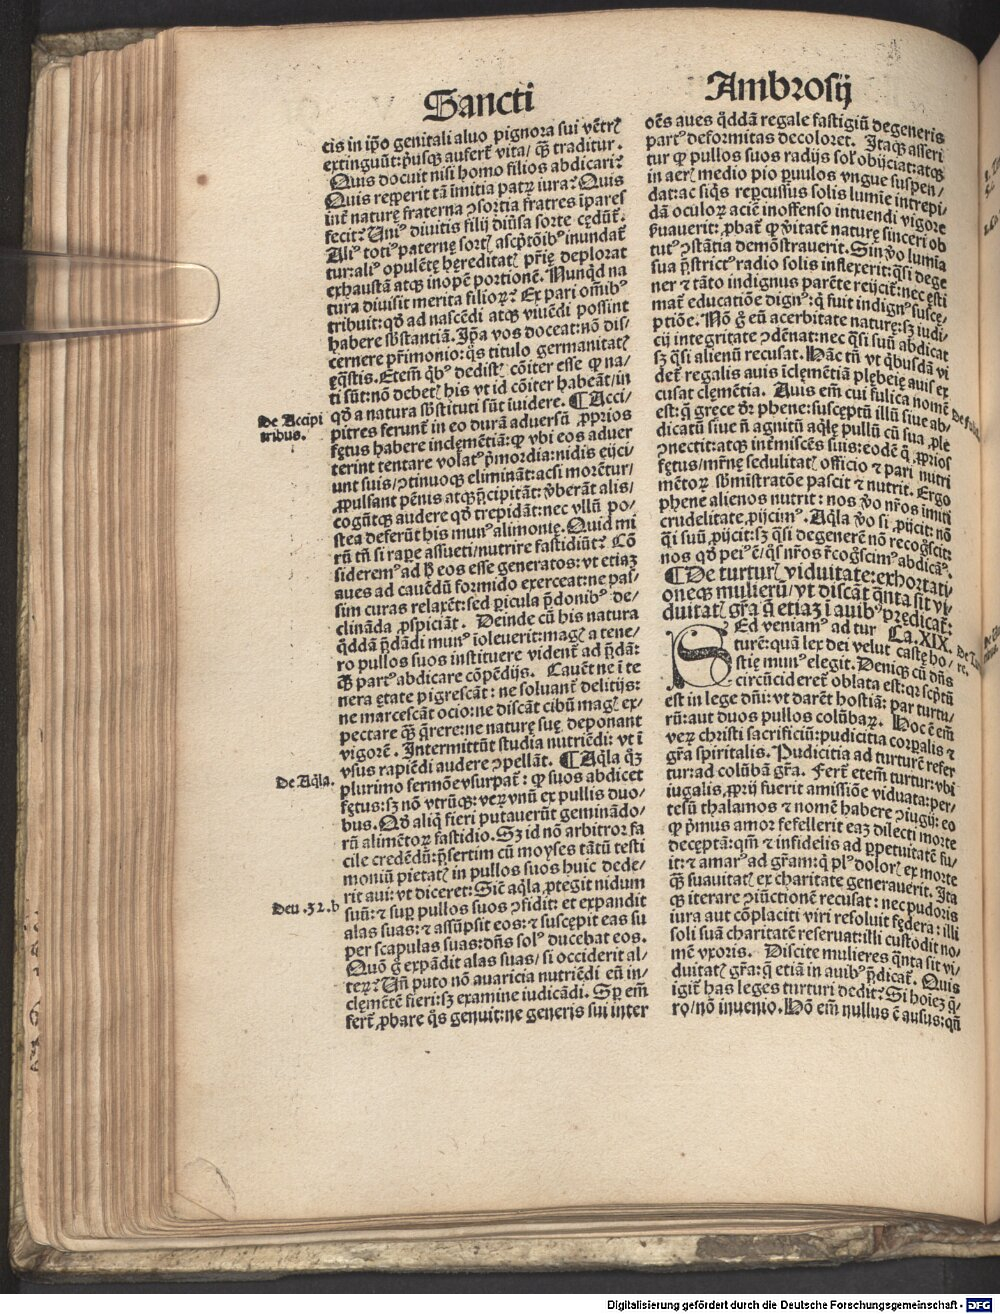 Sancti
Ambrosij
cis in ip̄o genitali aluo pignora sui vētrꝭ
extinguūt: pͥusqꝫ auferᵗ vita/ q̄ꝫ traditur.
Quis docuit nisi homo filios abdicari?
Quis repperit tā īmitia patꝝ iura? Quis
int̄ naturę fraterna ꝯsortia fratres īpares
fecit? Uniꝰ diuitis filij diūsa sorte cędūt̄.
Aliꝰ totiꝰ paternę sortꝭ ascp̄tōibꝰ inundat̄
tur: aliꝰ opulētę hęreditatꝭ pr̄ię deplorat
exhaustā atqꝫ inopē portionē. Nunqd̄ na
tura diuisit merita filioꝝ? Ex pari om̄ibꝰ
tribuit: qd̄ ad nascēdi atqꝫ viuēdi possint
habere sb̄stantiā. Ip̄a vos doceat: nō dis/
cernere pr̄imonio: q̄s titulo germanitatꝭ
ęq̄stis. Etem̄ qͥbꝰ dedistꝭ cōiter esse ꝙ na/
ti sūt: nō debetꝭ his vt id cōiter habeāt/ in
qd̄ a natura sb̄stituti sūt īuidere. ¶ Acci/
pitres ferunt̄ in eo durā aduersū ꝓprios
fętus habere inclęmētiā: ꝙ vbi eos aduer
terint tentare volatꝰ pͥmordia: nidis eijci/
unt suis/ ꝯtinuoqꝫ elimināt: acsi morēt̄ur/
ꝓpulsant pēnis atqꝫ p̄cipitāt: v̄berāt alis/
cogūtqꝫ audere qd̄ trepidāt: nec vllū po/
stea deferūt his munꝰ alimonię. Quid mi
rū tn̄ si rape assueti/ nutrire fastidiūt? Cō
sideremꝰ ad h̄ eos esse generatos: vt etiaꝫ
aues ad cauēdū formido exerceat: ne pas/
sim curas relaxēt: sed ꝑicula p̄donibꝰ de/
clināda ꝓspiciāt. Deinde cū his natura
qͥdā p̄dādi munꝰ īoleuerit: magꝭ a tene/
ro pullos suos instituere vident̄ ad p̄dā:
q̄ꝫ partꝰ abdicare cōpēdijs. Cauēt ne ī te
nera ętate pigrescāt: ne soluant̄ delitijs:
ne marcescāt ocio: ne discāt cibū magꝭ ex/
pectare q̄ꝫ q̄rere: ne naturę suę deponant
vigorē. Intermittūt studia nutriēdi: vt ī
vsus rapiēdi audere ꝯpellāt. ¶ Aqͥla qͦꝫ
plurimo sermōe vsurpat̄: ꝙ suos abdicet
fętus: sꝫ nō vtrūqꝫ: veꝝ vnū ex pullis duo/
bus. Qd̄ aliqͥ fieri putauerūt geminādo/
rū alimētoꝝ fastidio. Sꝫ id nō arbitror fa
cile credēdū: p̄sertim cū moyses tātū testi
moniū pietatꝭ in pullos suos huic dede/
rit aui: vt diceret: Sic̄ aqͥla ꝓtegit nidum
suū: ⁊ suꝑ pullos suos ꝯfidit: et expandit
alas suas: ⁊ assūpsit eos: ⁊ suscępit eas su
per scapulas suas: dn̄s solꝰ ducebat eos.
Quō g̊ expādit alas suas/ si occiderit al/
teꝝ? Un̄ puto nō auaricia nutriēdi eū in/
clęmētē fieri: sꝫ examine iudicādi. Sꝑ em̄
fert̄ ꝓbare q̄s genuit: ne generis sui inter
De Accipi
tribus.
De Aqͥla.
Deu .32. b
oēs aues qͥddā regale fastigiū degeneris
partꝰ deformitas decoloret. Itaqꝫ asseri
tur ꝙ pullos suos radijs solꝭ obijciat: atqꝫ
in aerꝭ medio pio ꝑuulos vngue suspen/
dat: ac siqͥs repcussus solis lumīe intrepi/
dā oculoꝝ aciē inoffenso intuendi vigore
ẜuauerit: ꝓbat̄ ꝙ v̄itatē naturę sinceri ob
tutꝰ ꝯstātia demōstrauerit. Sin v̄o lumīa
sua p̄strictꝰ radio solis inflexerit: qͣsi dege
ner ⁊ tāto indignus parēte reijcit̄: nec ęsti
mat̄ educatiōe dignꝰ: qͥ fuit indignꝰ suscę/
ptiōe. Nō g̊ eū acerbitate naturę: sꝫ iudi/
cij integritate ꝯdēnat: nec qͣsi suū abdicat
sꝫ qͣsi alienū recusat. Hāc tn̄ vt qͥbusdā vi
det̄ regalis auis īclęmētiā plębeię auis ex
cusat clęmētia. Auis em̄ cui fulica nomē
est: q̄ gręce dr̄ phene: susceptū illū siue ab/
dicatū siue n̄ agnitū aqͥlę pullū cū sua ꝓle
ꝯnectit: atqꝫ int̄miscēs suis: eodē qͦ ꝓprios
fętus/ mr̄nę sedulitatꝭ officio ⁊ pari nutri
mētoꝝ sb̄ministratōe pascit ⁊ nutrit. Ergo
phene alienos nutrit: nos v̄o nr̄os īmiti
crudelitate ꝓijcimꝰ. Aqͥla v̄o si ꝓijcit: nō
qͣi suū ꝓijcit: sꝫ qͣsi degenerē nō recogn̄scit:
nos qd̄ peiꝰ ē/ qͣs nr̄os r̄cogn̄scimꝰ abdicamꝰ.
¶ De turturꝭ viduitate: exhortati/
oneqꝫ mulierū/ vt discāt qͣnta sit vi/
duitatꝭ gr̄a q̄ etiaꝫ ī auibꝰ prędicat̄:
Ca. XIX.
SEd veniamꝰ ad tur
turē: quā lex dei velut castę ho/
stię munꝰ elegit. Deniqꝫ cū dn̄s
circūcideret̄ oblata est: qꝛ scp̄tū
est in lege dn̄i: vt darēt hostiā: par turtu/
rū: aut duos pullos colūbaꝝ. Hoc ē em̄
veꝝ christi sacrificiū: pudicitia corꝑalis ⁊
gr̄a spiritalis. Pudicitia ad turturē refer
tur: ad colūbā gr̄a. Fert̄ etem̄ turtur: vbi
iugalis ꝓprij fuerit amissiōe viduata: per/
tesū thalamos ⁊ nomē habere ꝯiugij: eo
ꝙ pͥmus amor fefellerit eaꝫ dilecti morte
deceptā: qm̄ ⁊ infidelis ad ꝑpetuitatē fu/
it: ⁊ amarꝰ ad gr̄am: qͥ plꝰ dolorꝭ ex morte
q̄ꝫ suauitatꝭ ex charitate generauerit. Ita
qꝫ iterare ꝯiūctionē recusat: nec pudoris
iura aut cōplaciti viri resoluit fędera: illi
soli suā charitatē reseruat: illi custodit no/
mē vxoris. Discite mulieres qͣnta sit vi/
duitatꝭ gr̄a: q̄ etiā in auibꝰ p̄dicat̄. Quis
igit̄ has leges turturi dedit? Si hoiēꝫ q̄/
ro/ nō inuenio. Hō em̄ nullus ē ausus: qn̄